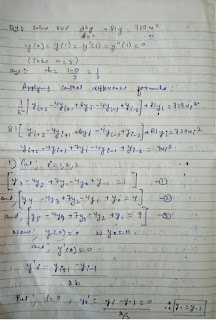 solve BVP d⁴y/dx⁴ + 81y = 729x²
y(0) = y'(0) = y''(1) = y'''(1) = 0
(Take n = 3)
Ans:- h = 1-0/3 = 1/3
Applying central difference formula:
1/h⁴ [y_{i+2} - 4y_{i+1} + 6y_i - 4y_{i-1} + y_{i-2}] + 81y_i = 729x_i²
81 [y_{i+2} - 4y_{i+1} + 6y_i - 4y_{i-1} + y_{i-2}] + 81y_i = 729x_i²
y_{i+2} - 4y_{i+1} + 7y_i - 4y_{i-1} + y_{i-2} = 9x_i²
Put, i = 1, 2, 3.
y_3 - 4y_2 + 7y_1 - 4y_0 + y_{-1} = 1 - ①
y_4 - 4y_3 + 7y_2 - 4y_1 + y_0 = 4 - ②
and, y_5 - 4y_4 + 7y_3 - 4y_2 + y_1 = 9 - ③
Now, y(0) = 0 y_0 = 0.
and y'(0) = 0.
y'_i = y_{i+1} - y_{i-1}
2h
Put, i = 0, y'_0 = y_1 - y_{-1} = 0 ∴ y_1 = y_{-1}
2/3